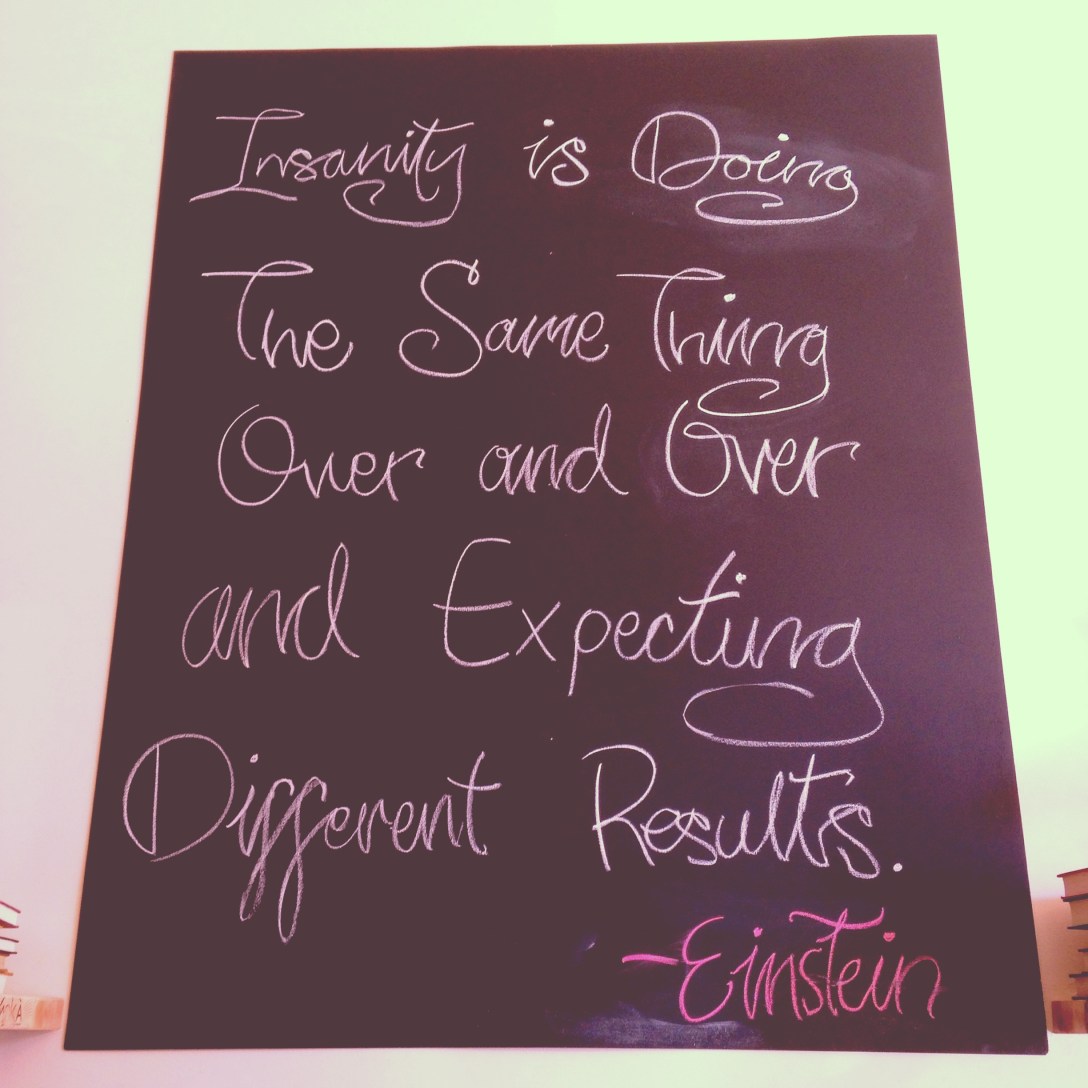 Insanity is Doing
The Same Thing
Over and Over
and Expecting
Different Results.
-Einstein